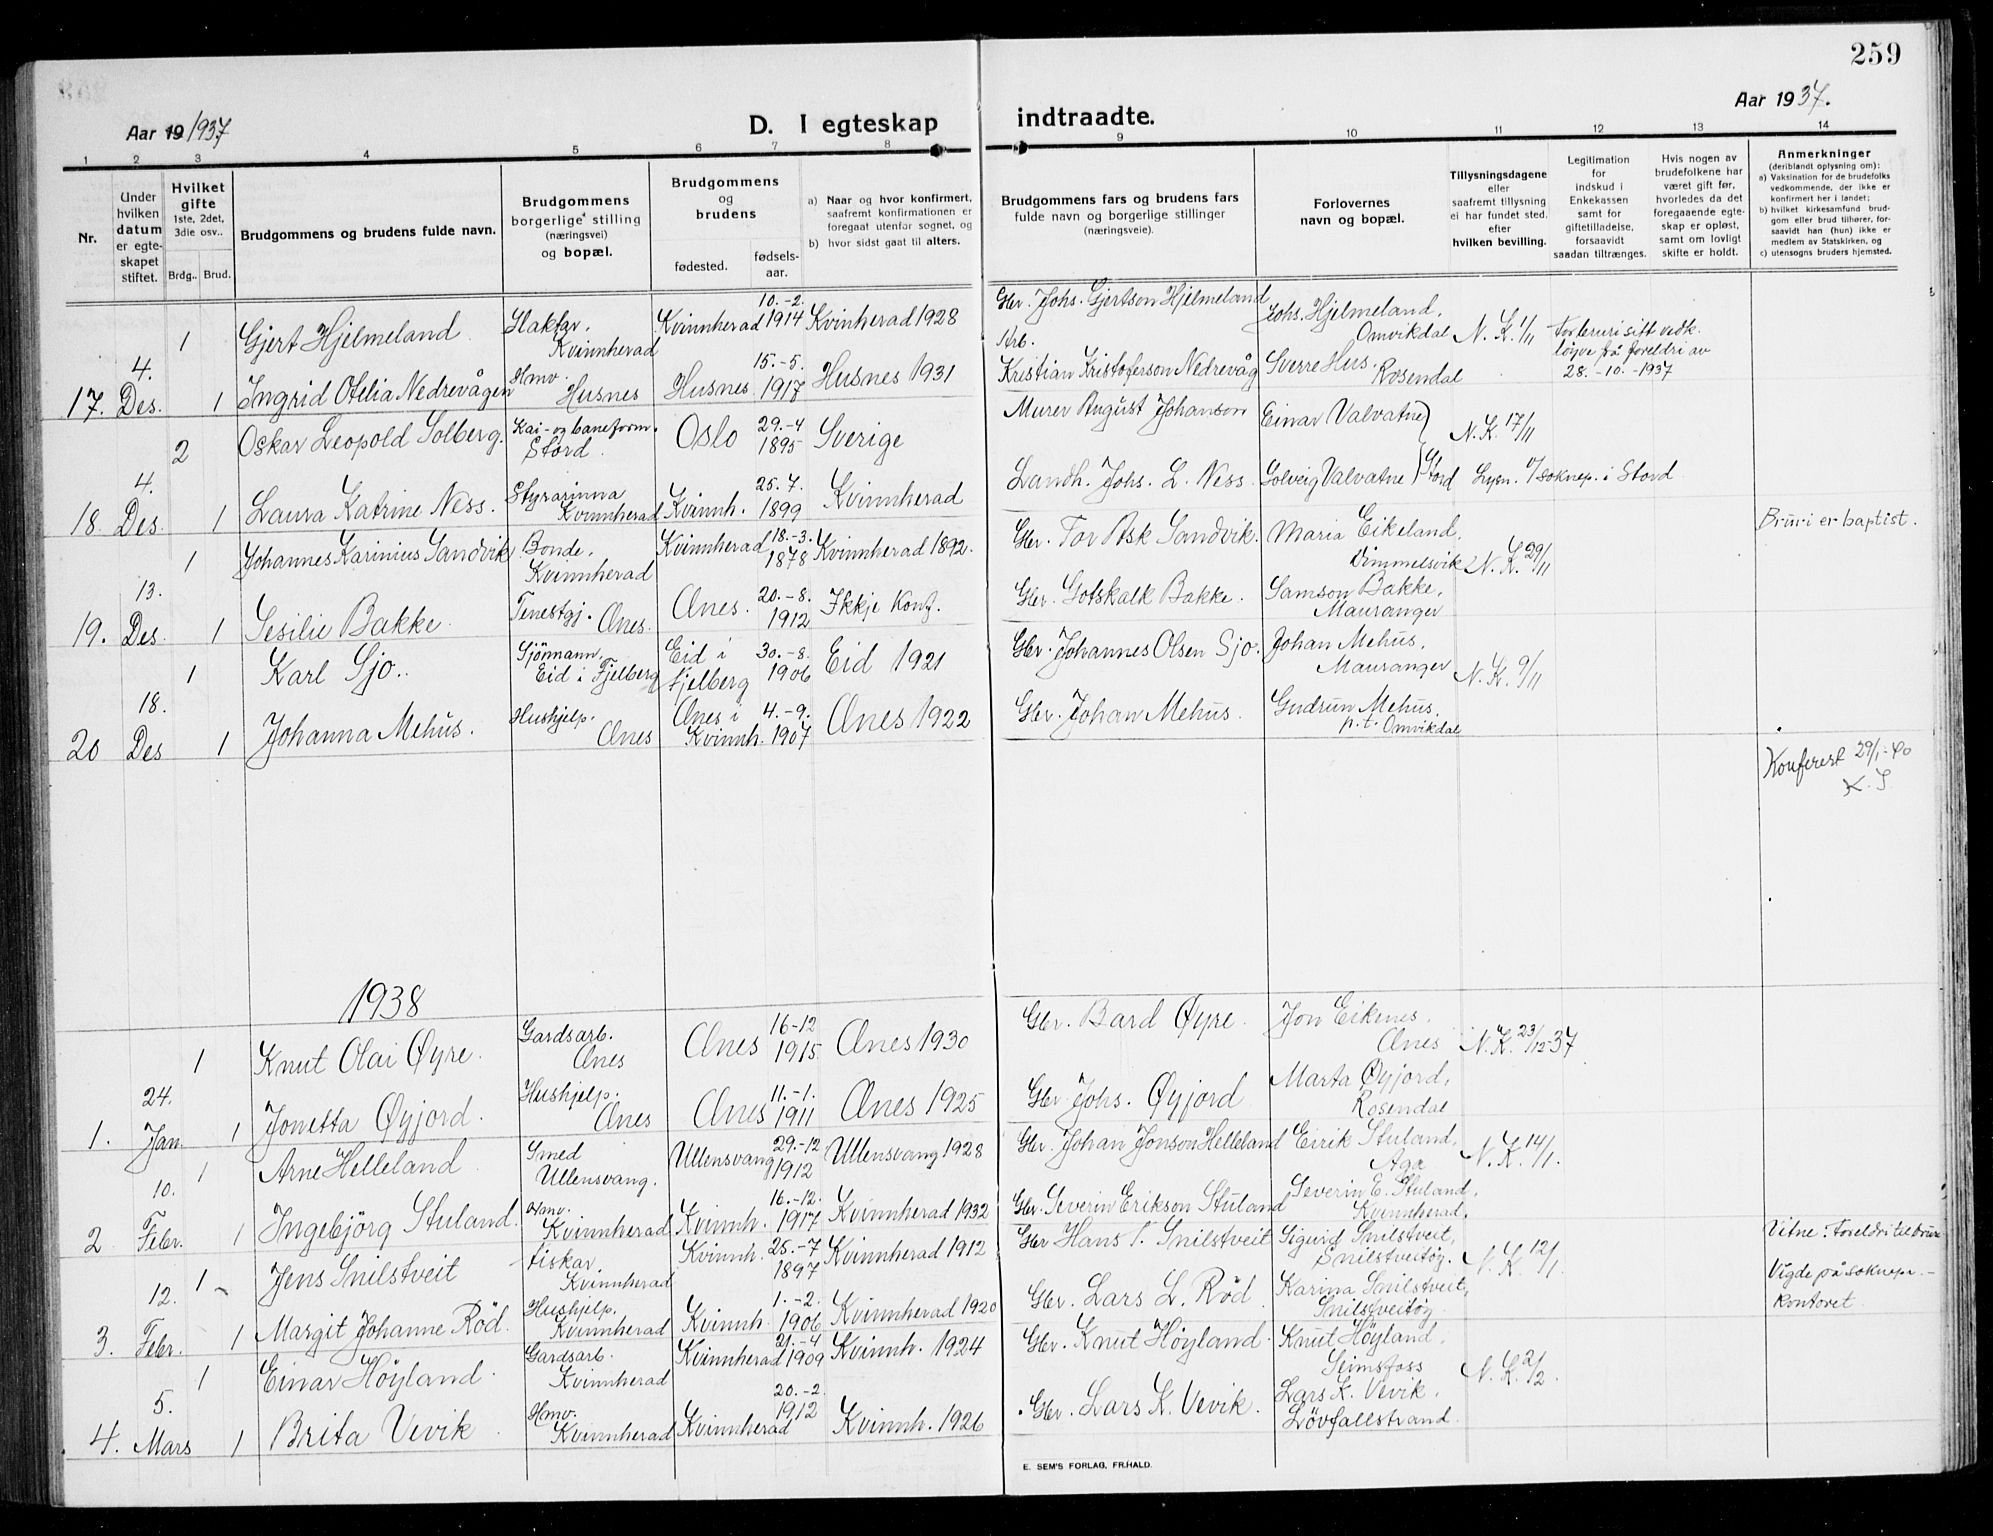 259
Aar 19 1937
D. I egteskap indtraadte.
Aar 1937.
1 2 3 4 5 6 7 8 9 10 11 12 13 14
Nr.
Under hvilken datum er egteskapet stiftet.
Hvilket gifte 1ste, 2det, 3die osv..
Brdg.. Brud.
Brudgommens og brudens fulde navn.
Brudgommens borgerlige stilling (næringsvei) og bopæl.
Brudgommens og brudens
fødested. fødselsaar.
a) Naar og hvor konfirmert, saafremt konfirmationen er foregaat utenfor sognet, og
b) hvor sidst gaat til alters.
Brudgommens fars og brudens fars fulde navn og borgerlige stillinger (næringsveie).
Forlovernes navn og bopæl.
Tillysningsdagene eller saafremt tillysning ei har fundet sted, efter hvilken bevilling.
Legitimation for indskud i Enkekassen samt for giftetilladelse, forsaavidt saadan tiltrænges.
Hvis nogen av brudefolkene har været gift før, hvorledes da det foregaaende egteskap er opløst, samt om lovligt skifte er holdt.
Anmerkninger (deriblandt oplysning om):
a) Vaksination for de brudefolks vedkommende, der ikke er konfirmert her i landet;
b) hvilket kirkesamfund brudgom eller brud tilhører, forsaavidt han (hun) ikke er medlem av Statskirken, og
c) utensogns bruders hjemsted.
1 Gjert Hjelmeland Kvinnherad Kvinnherad 10.-2. 1914 Kvinherad 1928 Gbr. Johs. Gjertson Hjelmeland Johs. Hjelmeland, Omvikdal N. K. 1/11
28.-10.-1937
17. 4. Des. 1 Ingrid Otelia Nedrevågen Hmv. Husnes Husnes 15.-5. 1917 Husnes 1931 Arb. Kristian Kristoferson Nedrevåg Sverre Hus. Rosendal
2 Oskar Leopold Solberg. Kai- og baneform. Stord. Oslo 29.-4 1895 Sverige Murer August Johanson Einar Valvatne N. K. 17/11
18. 4. Des. 1 Laura Katrine Ness. Styrarinna Kvinnherad Kvinnh. 25.7. 1899 Kvinnherad Landh. Johs. L. Ness Solveig Valvatne Stord Lysn. soknep. i Stord Bruri er baptist.
1 Johannes Karinius Sandvik Bonde. Kvinnherad Kvinnherad 18.-3. 1878 Kvinnherad 1892. Gbr. Tor Ask Sandvik. Maria Eikeland, Dimmelsvik N. K. 29/11
19. 13. Des. 1 Sesilie Bakke. Tenestgj. Ænes. Ænes. 20.-8. 1912 Ikkje Konf. Gbr. Gotskalk Bakke. Samson Bakke, Mauranger
1 Karl Sjo.. Sjömann. Eid i Fjelberg Eid i Fjelberg 30.-8. 1906 Eid 1921 Gbr. Johannes Olsen Sjo. Johan Mehus, Mauranger N. K. 9/11
20 18. Des 1 Johanna Mehus. Hushjelp. Ænes Ænes i Kvinnh. 4.-9. 1907 Ænes 1922 Gbr. Johan Mehus. Gudrun Mehus, p.t. Omvikdal
Konferert 29/1-40
K. S.
1938
1 Knut Olai Øyre. Gardsarb. Ænes Ænes 16-12 1915 Ænes 1930 Gbr. Bard Øyre. Jon Eikenes. Ænes N. K. 23/12-37
1. 24. Jan. 1 Jonetta Øyjord. Hushjelp. Ænes Ænes 11.-1. 1911 Ænes 1925 Gbr. Johs. Øyjord Marta Øyjord, Rosendal
1 Arne Helleland Smed Ullensvang. Ullensvang 29.-12 1912 Ullensvang 1928 Gbr. Johan Jonson Helleland Eirik Stuland, Aga N. K. 14/1.
2 10. Febr. 1 Ingebjörg Stuland. Hmv. Kvinnherad Kvinnh. 16.-12. 1917 Kvinnherad 1932 Gbr. Severin Erikson Stuland Severin E. Stuland, Kvinnherad.
1 Jens Snilstveit Fiskar. Kvinnherad Kvinnh. 25.-7 1897 Kvinnherad 1912 Gbr Hans T. Snilstveit Sigurd Snilstveit, Snilstveitøy. N. K. 12/1. Vitne: Foreldri til brura
3. 12. Febr. 1 Margit Johanne Röd. Hushjelp. Kvinnherad Kvinnh. 1.-2. 1906 Kvinnherad 1920 Gbr. Lars L. Röd Karina Snilstveit, Snilstveitöy. Vigde på soknepr.-kontoret
1 Einar Höyland. Gardsarb. Kvinnherad Kvinnherad 21.-4 1909 Kvinnh. 1924 Gbr. Knut Höyland. Knut Höyland, Seimsfoss N. K. 2/2.
4. 5. Mars 1 Brita Vevik Hmv. Kvinnherad Kvinnherad 20.-2. 1912 Kvinnh. 1926 Gbr. Lars K. Vevik. Lars K. Vevik, Lövfallstrand.
E. SEM'S FORLAG, FR.HALD.